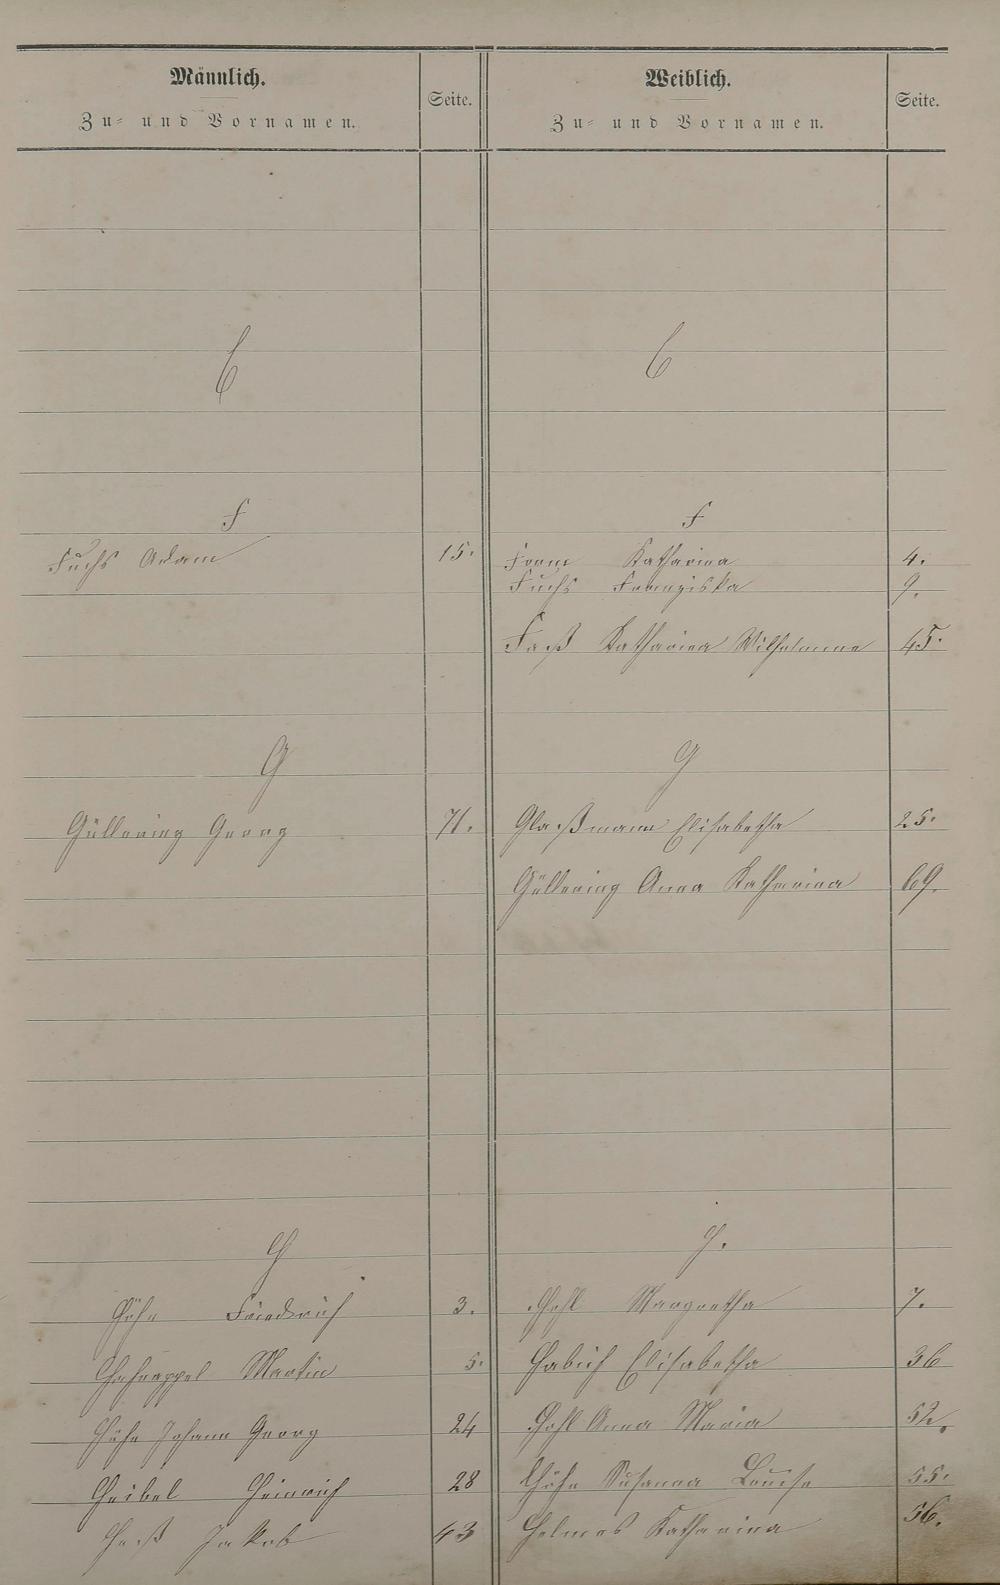 Männlich.
Zu- und Vornamen.
Seite.
Weiblich.
Zu- und Vornamen.
Seite.
E
E
F
F
Fuchs Adam 15.
Katharina 4.
Fuchs Franziska 9.
Faß Katharina Wilhelmine 45.
G
G
Güllering Georg 71.
Glaßmann Elisabetha 25.
Güllering Anna Katharina 69.
H
H.
Höhn Friedrich 3.
Hohl Margretha 7.
Martin 5.
Habich Elisabetha 36
Höhn Johann Georg 24
Hohl Anna Maria 52.
Heibel Heinrich 28
Höhn Susanna Louise 55.
Heß Jakob 43
Helmes Katharina 56.